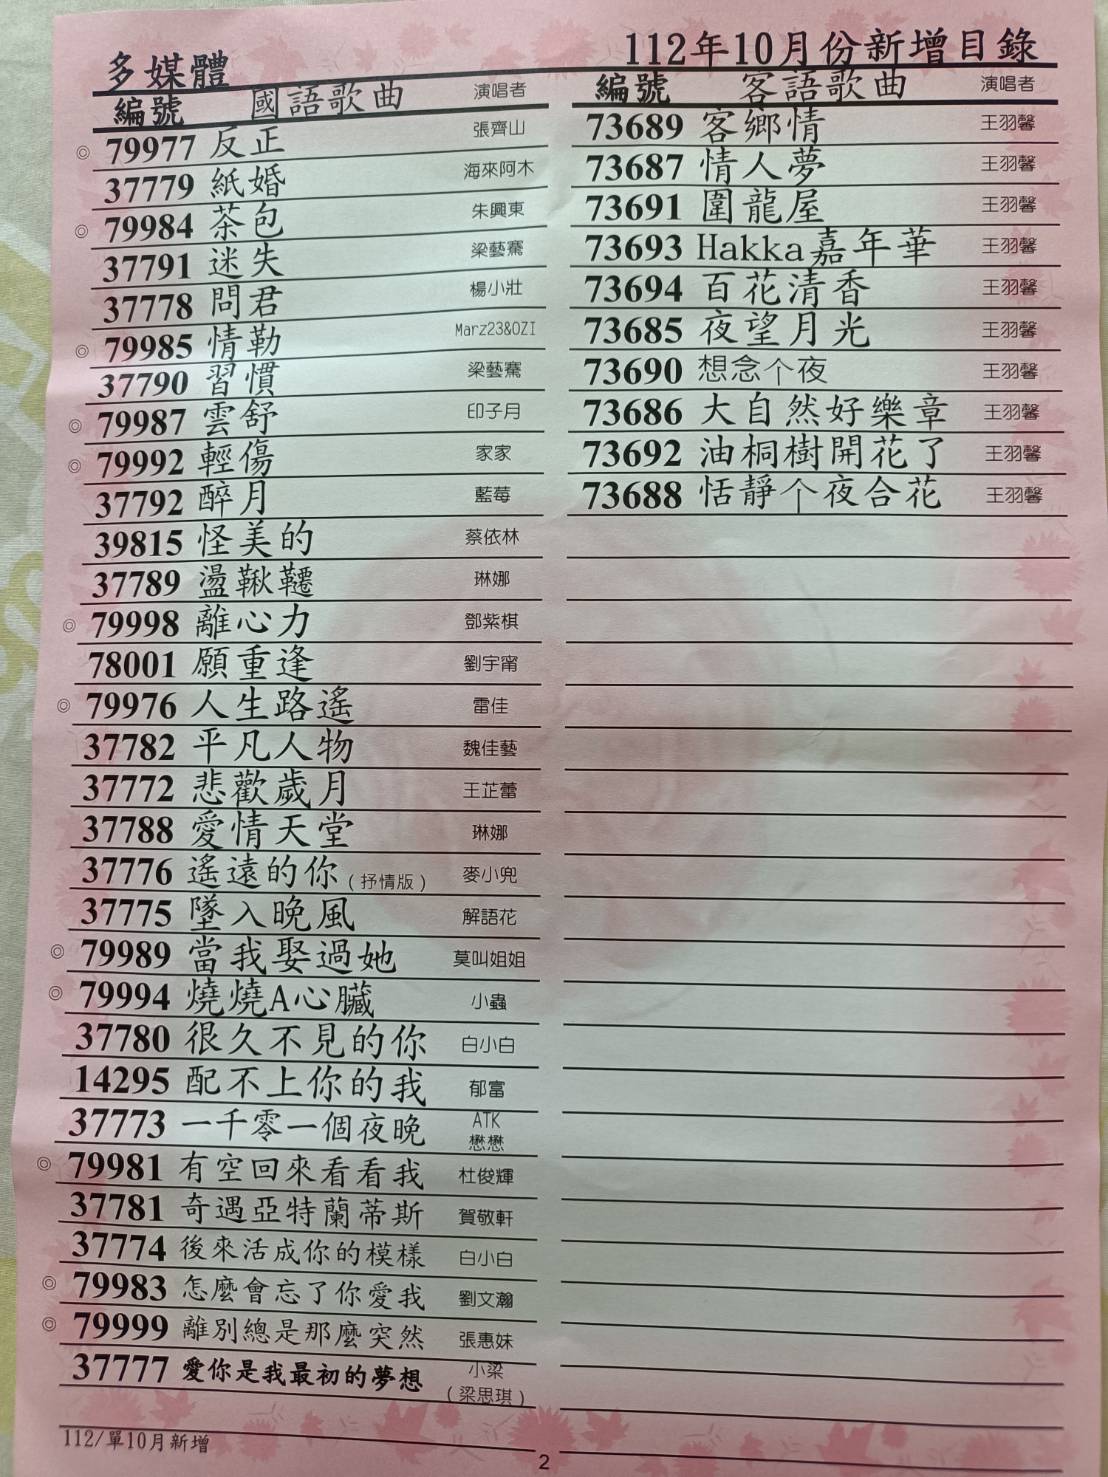 多媒體
112年10月份新增目錄
編號 國語歌曲 演唱者
◎ 79977 反正 張齊山
37779 紙婚 海來阿木
◎ 79984 茶包 朱興東
37791 迷失 梁藝騫
37778 問君 楊小壯
◎ 79985 情勒 Marz23&OZI
37790 習慣 梁藝騫
◎ 79987 雲舒 印子月
◎ 79992 輕傷 家家
37792 醉月 藍莓
39815 怪美的 蔡依林
37789 盪鞦韆 琳娜
◎ 79998 離心力 鄧紫棋
78001 願重逢 劉宇甯
◎ 79976 人生路遙 雷佳
37782 平凡人物 魏佳藝
37772 悲歡歲月 王芷蕾
37788 愛情天堂 琳娜
37776 遙遠的你(抒情版) 麥小兜
37775 墜入晚風 解語花
◎ 79989 當我娶過她 莫叫姐姐
◎ 79994 燒燒A心臟 小蟲
37780 很久不見的你 白小白
14295 配不上你的我 郁富
37773 一千零一個夜晚 ATK
懋懋
◎ 79981 有空回來看看我 杜俊輝
37781 奇遇亞特蘭蒂斯 賀敬軒
37774 後來活成你的模樣 白小白
◎ 79983 怎麼會忘了你愛我 劉文瀚
◎ 79999 離別總是那麼突然 張惠妹
37777 愛你是我最初的夢想 小梁
(梁思琪)
編號 客語歌曲 演唱者
73689 客鄉情 王羽馨
73687 情人夢 王羽馨
73691 圍龍屋 王羽馨
73693 Hakka嘉年華 王羽馨
73694 百花清香 王羽馨
73685 夜望月光 王羽馨
73690 想念个夜 王羽馨
73686 大自然好樂章 王羽馨
73692 油桐樹開花了 王羽馨
73688 恬靜个夜合花 王羽馨
112/單10月新增
2